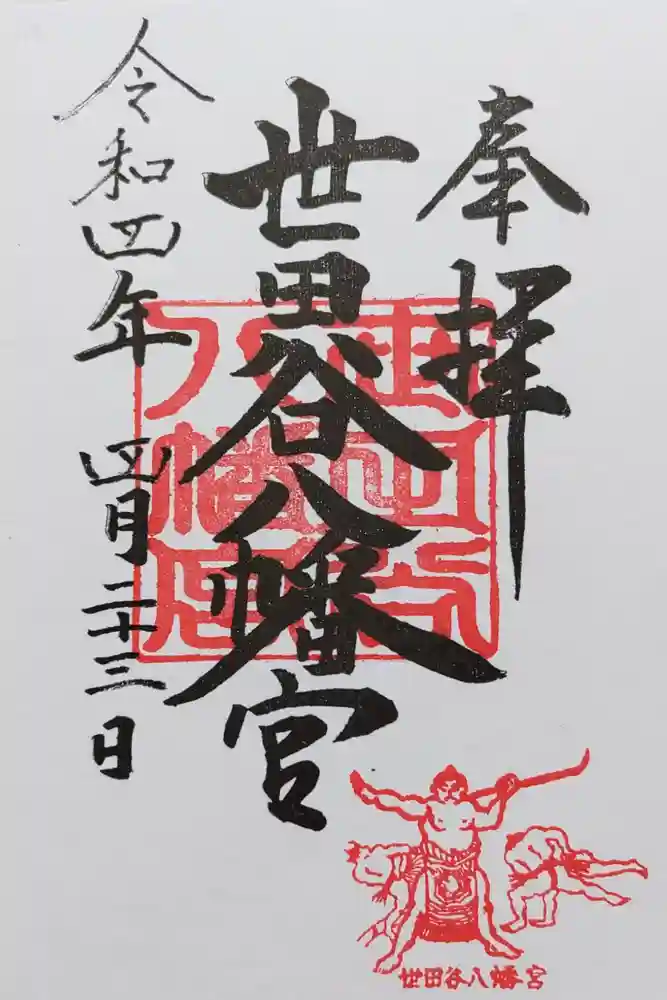 奉拝
世田谷八幡宮
令和四年四月二十三日
世田谷八幡宮
世田谷八幡宮